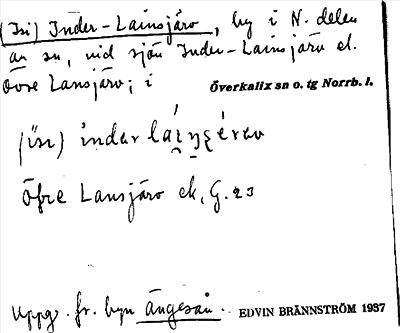 (Isi) Inder-Lainsjärv, by i N. delen
av sn, vid sjön Inder-Lainsjärv el.
Övre Lansjärv; i
Överkalix sn o. tg Norrb. l.
Öfre Lansjärv ek. G. 23
Uppg. fr. byn Ängesån.
EDVIN BRÄNNSTRÖM 1937